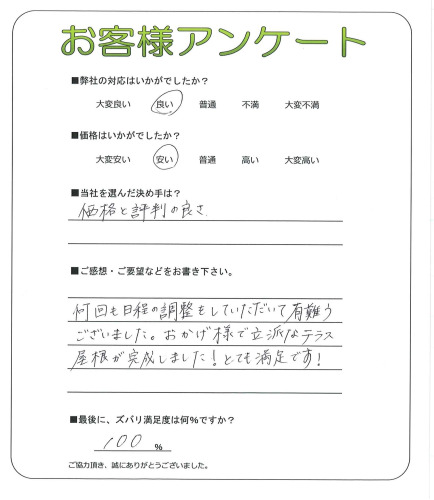 お客様アンケート
■弊社の対応はいかがでしたか?
大変良い 良い 普通 不満 大変不満
■価格はいかがでしたか?
大変安い 安い 普通 高い 大変高い
■当社を選んだ決め手は?
価格と評判の良さ
■ご感想・ご要望などをお書き下さい。
何回も日程の調整をしていただいて有難う
ございました。おかげ様で立派なテラス
屋根が完成しました!とても満足です!
■最後に、ズバリ満足度は何%ですか?
100 %
ご協力頂き、誠にありがとうございました。